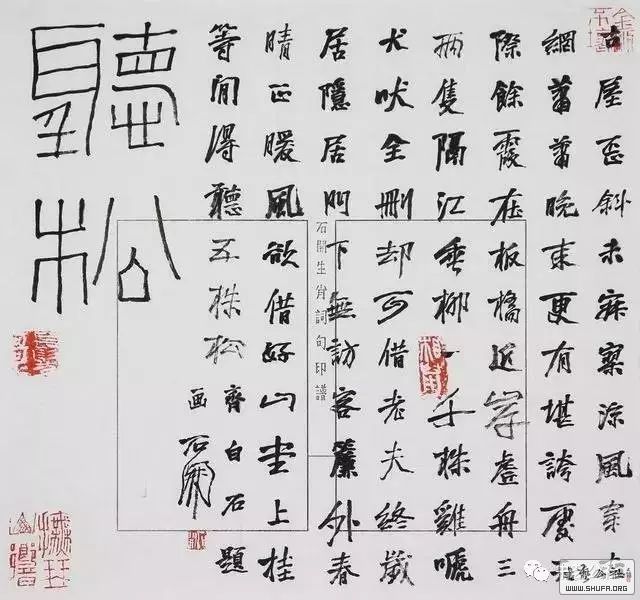 古屋歪斜未寂寥涼風穿
網蕭蕭晚來更有堪誇處天
際餘霞在板橋近岸虛舟三
兩隻隔江垂柳一千株雞啼
犬吠全刪却可借老夫終歲
居隱居門下無訪客簾外春
晴正暖風欲借好山堂上挂
等閒得聽五株松齊白石題
画石開
聽松
石開生肖詞句印譜
WWW.SHUFA.ORG